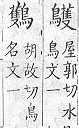 鸌屋郭切水鳥文一
胡故切鳥名文一